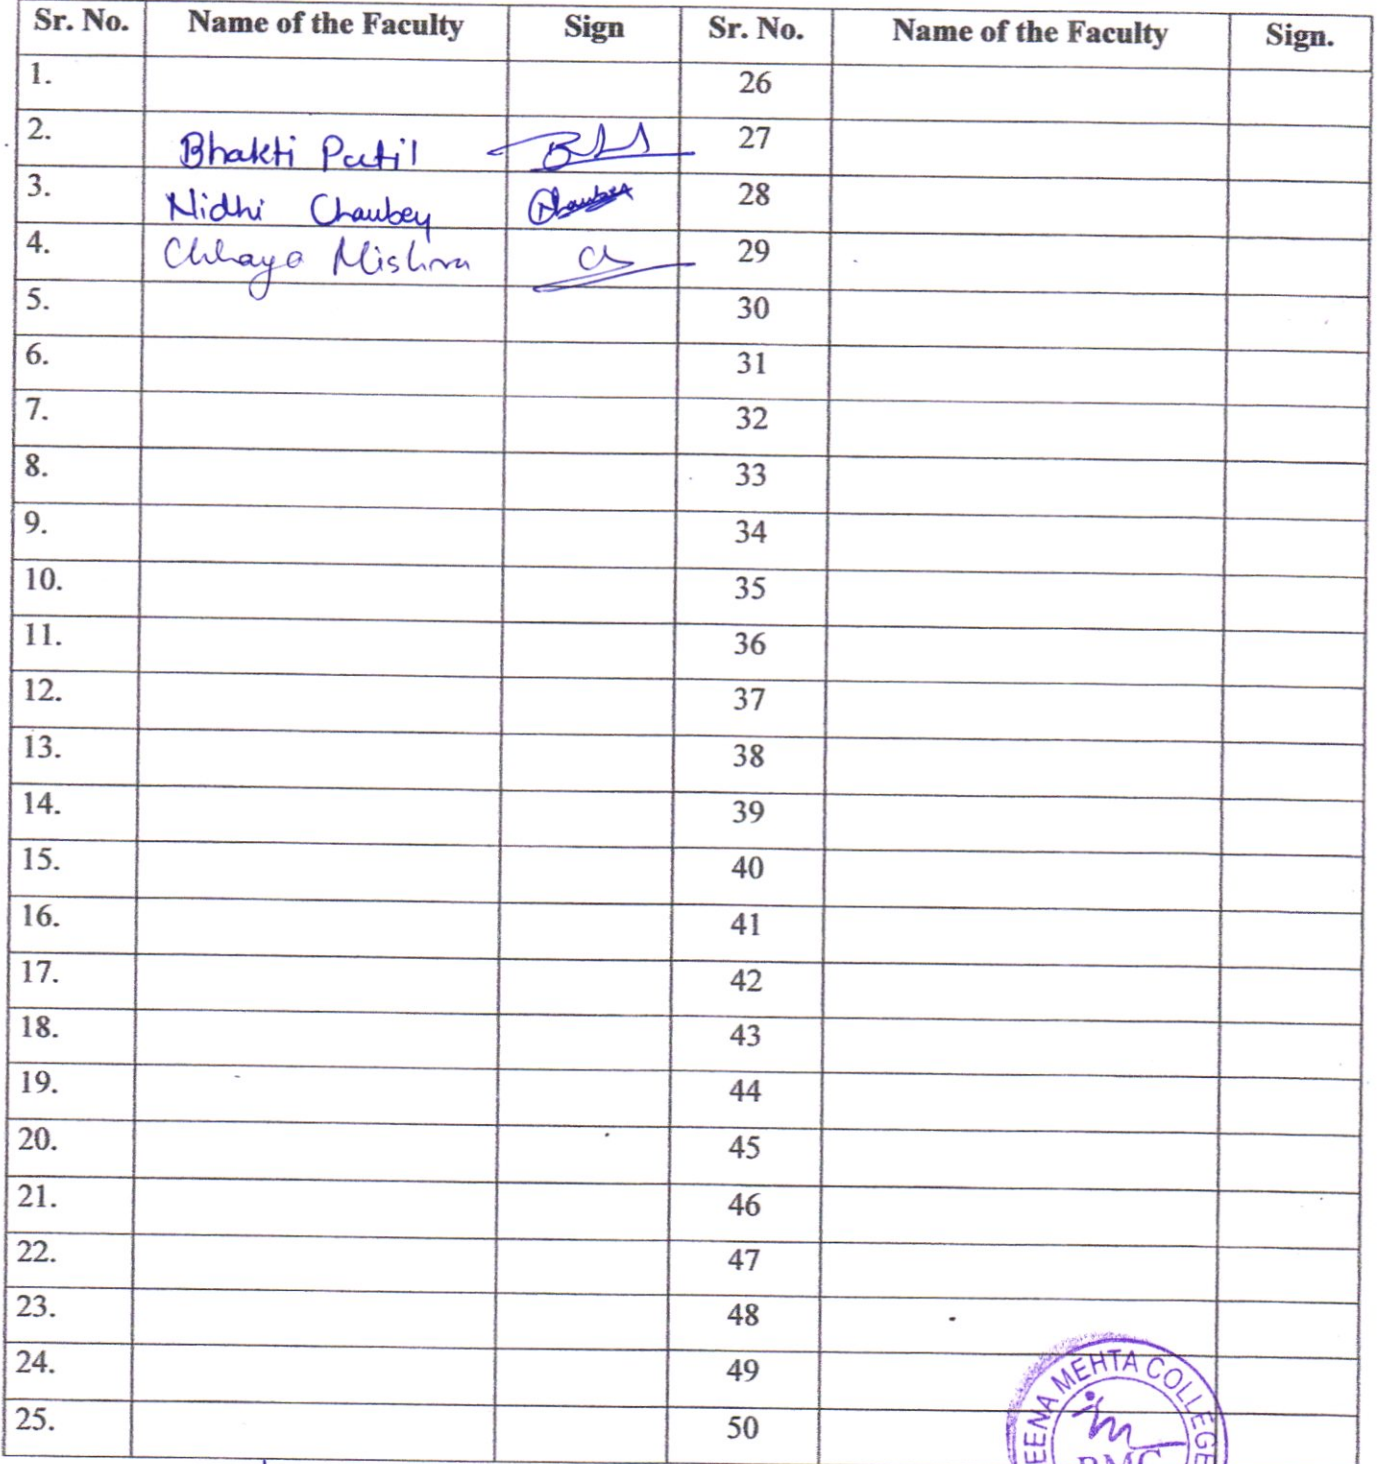 Sr. No. Name of the Faculty Sign Sr. No. Name of the Faculty Sign.
1. 26
2. Bhakti Patil 27
3. Nidhi Chaubey 28
4. Chhaya Mishra 29
5. 30
6. 31
7. 32
8. 33
9. 34
10. 35
11. 36
12. 37
13. 38
14. 39
15. 40
16. 41
17. 42
18. 43
19. 44
20. 45
21. 46
22. 47
23. 48
24. 49
25. 50
EENA MEHTA COLLEGE
RMC